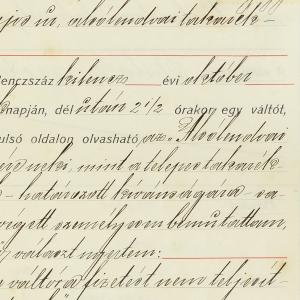 úr, alsólendvai takarék-
lenczszáz kilencz évi október
napján, dél után 2 1/2 órakor egy váltót,
tulsó oldalon olvasható az Alsólendvai
neki, mint a telepes takarék-
határozott kivánságára sa-
végett személyesen bemutattam,
választ nyertem:
váltóra fizetést nem teljesit-